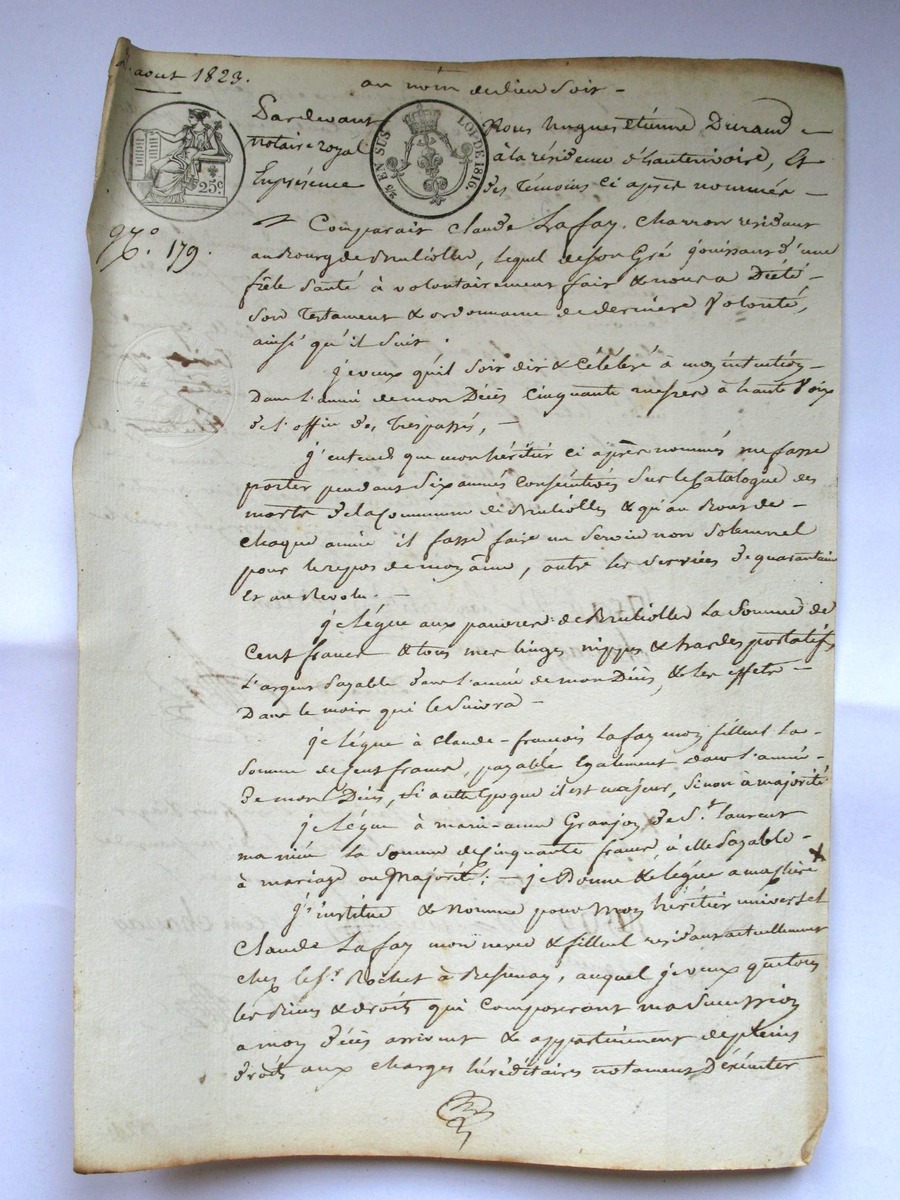 août 1823.
au nom de dieu soit –
Pardevant Nous hugues Etienne Durand
notaire royal à la résidence d'hauterivoire, Et
En présence des témoins ci après nommés –
25 EN SUS
LOI DE 1816
25c
No. 179.
Comparait Claude Lafay, Charron résidant
au Bourg de Brulliolle, lequel de son Gré jouissant d'une
frêle santé à volontairement fait & nous a Dicté
Son testament & ordonnance de dernière Volonté,
ainsi qu'il suit.
je veux quil soit dit & célébré à mon intention
Dans l'année de mon Décès Cinquante messes à haute Voix
de l'office des trespassés, –
j'entends que mon héritier ci après nommés me fasse
porter pendant Six années Consécutives Sur le Catalogue des
morts de la Commune de Brulliolles & qu'au Bout de
chaque année il fasse faire un Service non Solennel
pour le repos de mon âme, outre les Services de quarantaine
Et au Revolu.
je légue aux pauvres de Brulliolle la Somme de
Cent francs & tous mes linges nippes & hardes portatifs
l'argent payable dans l'année de mon Décès, & les effets
Dans le mois qui le suivra –
je légue à Claude-francois Lafay mon filleul la
Somme de Cent francs, payable également dans l'année
de mon Décès, Si a cette Epoque il est majeur, Sinon à majorité
je légue à marie-anne Granjon de St. laurent
ma niéce la Somme de Cinquante francs à elle payable
à mariage ou Majorité; – je Donne & légue a
j'institue & nomme pour mon héritier universel
Claude Lafay mon neveu & filleul résidant actuellement
chez le Sr. Rochet à Bessenay, auquel je veux que tous
les Biens & droits qui Composeront ma Succession
a mon décès arrivent & appartiennent de pleins
droits aux charges héréditaires notament D'éxécuter